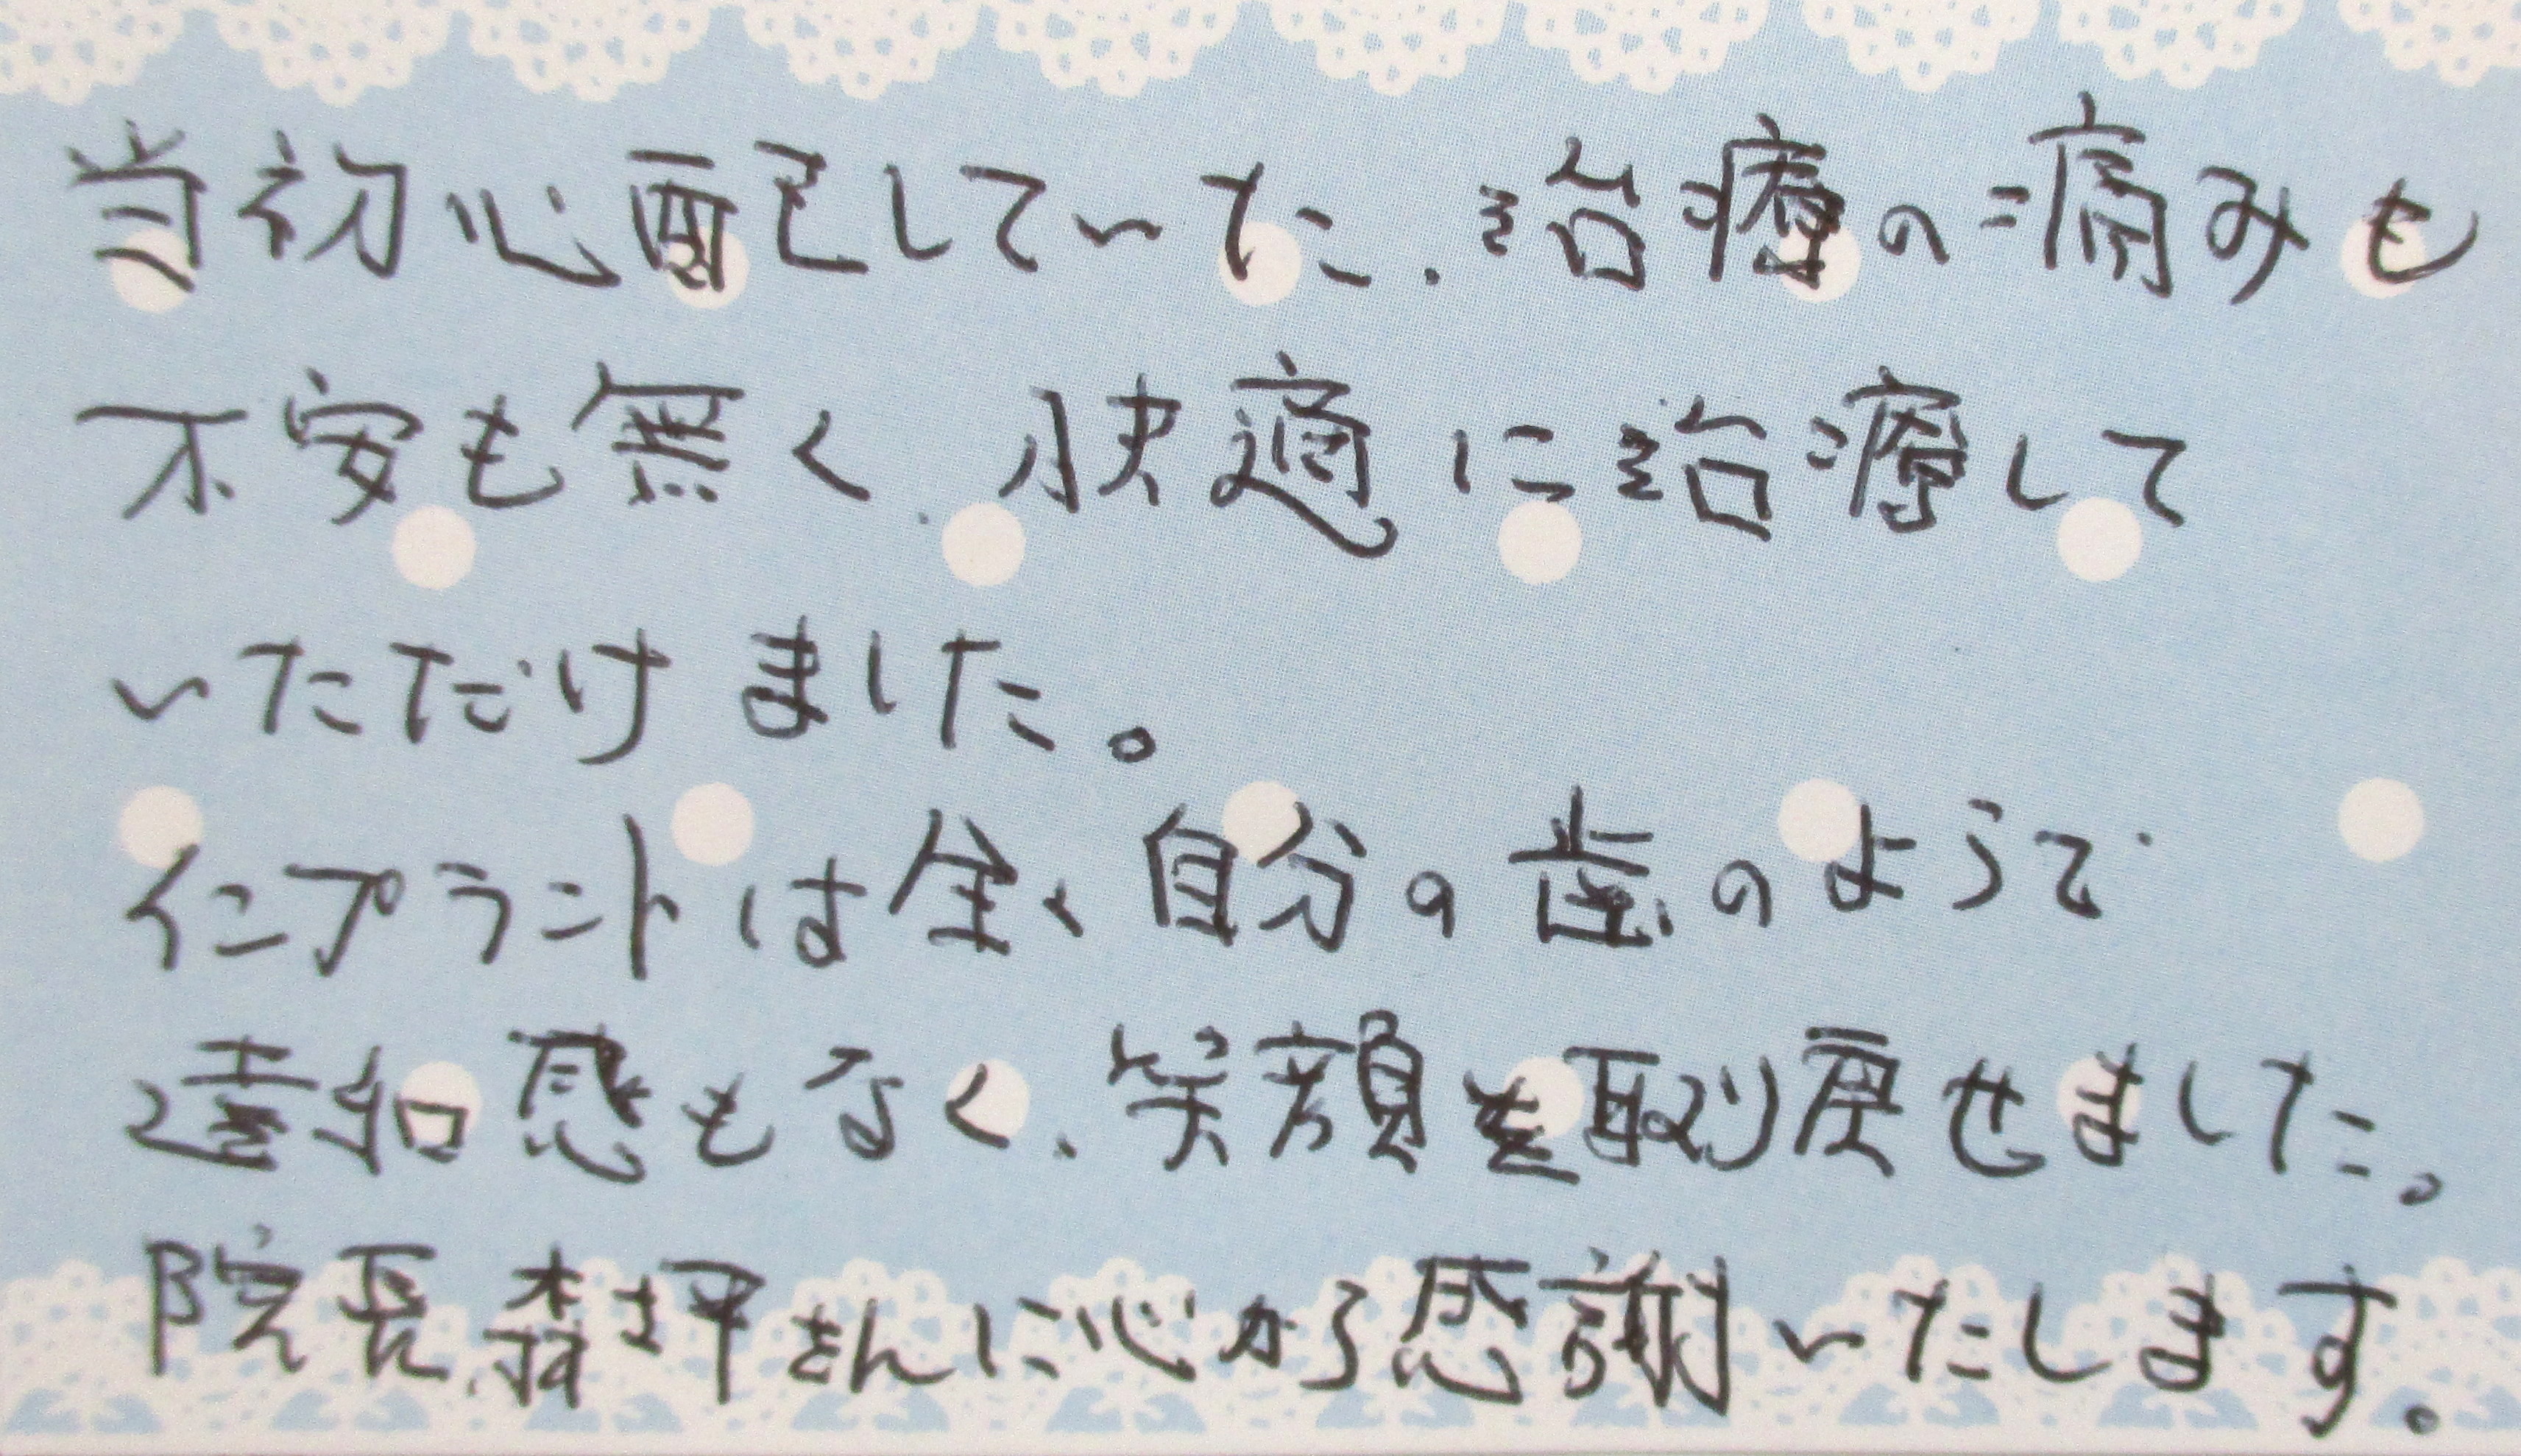 当初心配していた、治療の痛みも
不安も無く、快適に治療して
いただけました。
インプラントは全く自分の歯のようで
違和感もなく、笑顔を取り戻せました。
院長、森坪さんに心から感謝いたします。